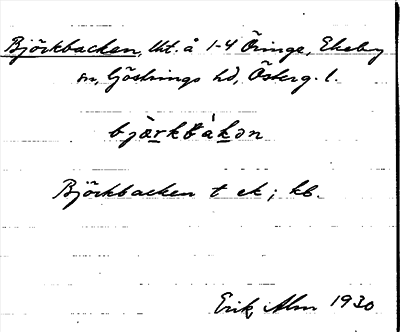 Björkbacken, lht. å 1-4 Öringe, Ekeby
sn, Göstrings hd, Österg. l.
bjærkbàkən
Björkbacken t ek; kb.
Erik Alm 1930